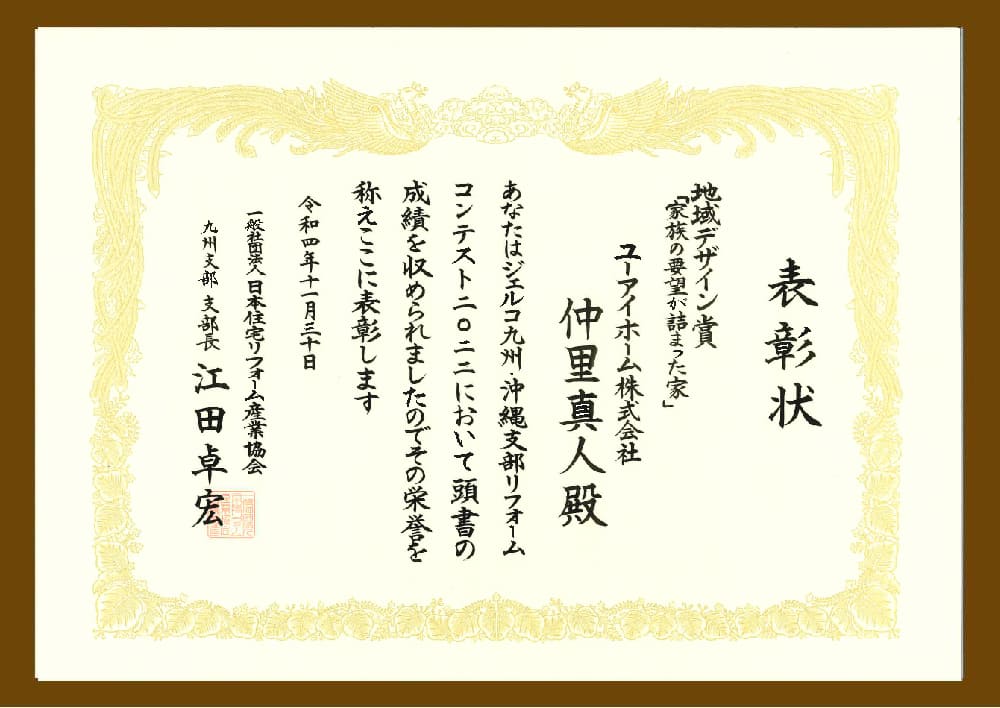 表彰状
地域デザイン賞
「家族の要望が詰まった家」
ユーアイホーム株式会社
仲里真人殿
あなたはジェルコ九州・沖縄支部リフォーム
コンテスト二〇二二において頭書の
成績を収められましたのでその栄誉を
称えここに表彰します
令和四年十一月三十日
一般社団法人日本住宅リフォーム産業協会
九州支部 支部長 江田卓宏